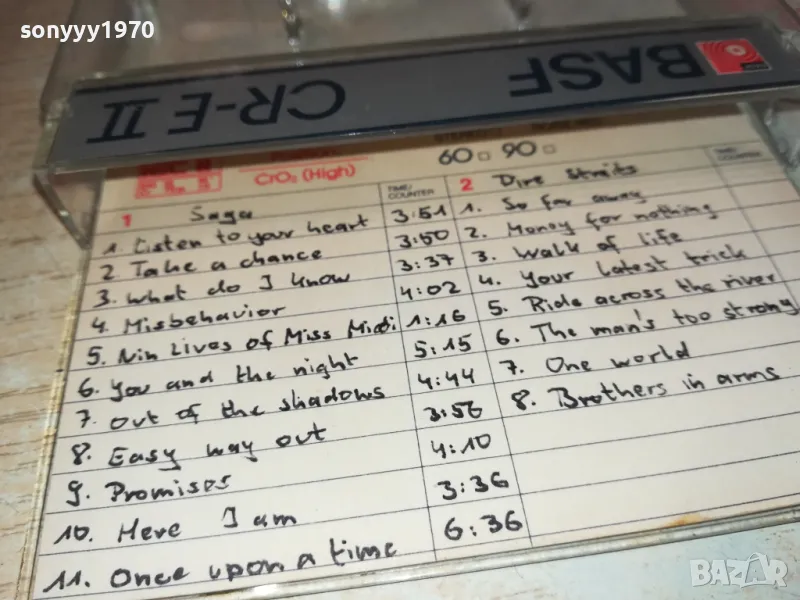 sonyyy1970
BASF
CR-E II
CrO₂ (High)
60 90
TIME/ COUNTER
TIME/ COUNTER
1 Saga
1. Listen to your heart 3:51
2 Take a chance 3:50
3. What do I know 3:37
4. Misbehavior 4:02
5. Nin Lives of Miss Midi 1:16
6. You and the night 5:15
7. Out of the shadows 4:44
8. Easy way out 3:56
9. Promises 4:10
10. Here I am 3:36
11. Once upon a time 6:36
2 Dire Straits
1. So far away
2. Money for nothing
3. Walk of life
4. Your latest trick
5. Ride across the river
6. The man's too strong
7. One world
8. Brothers in arms
BAZAR
bg